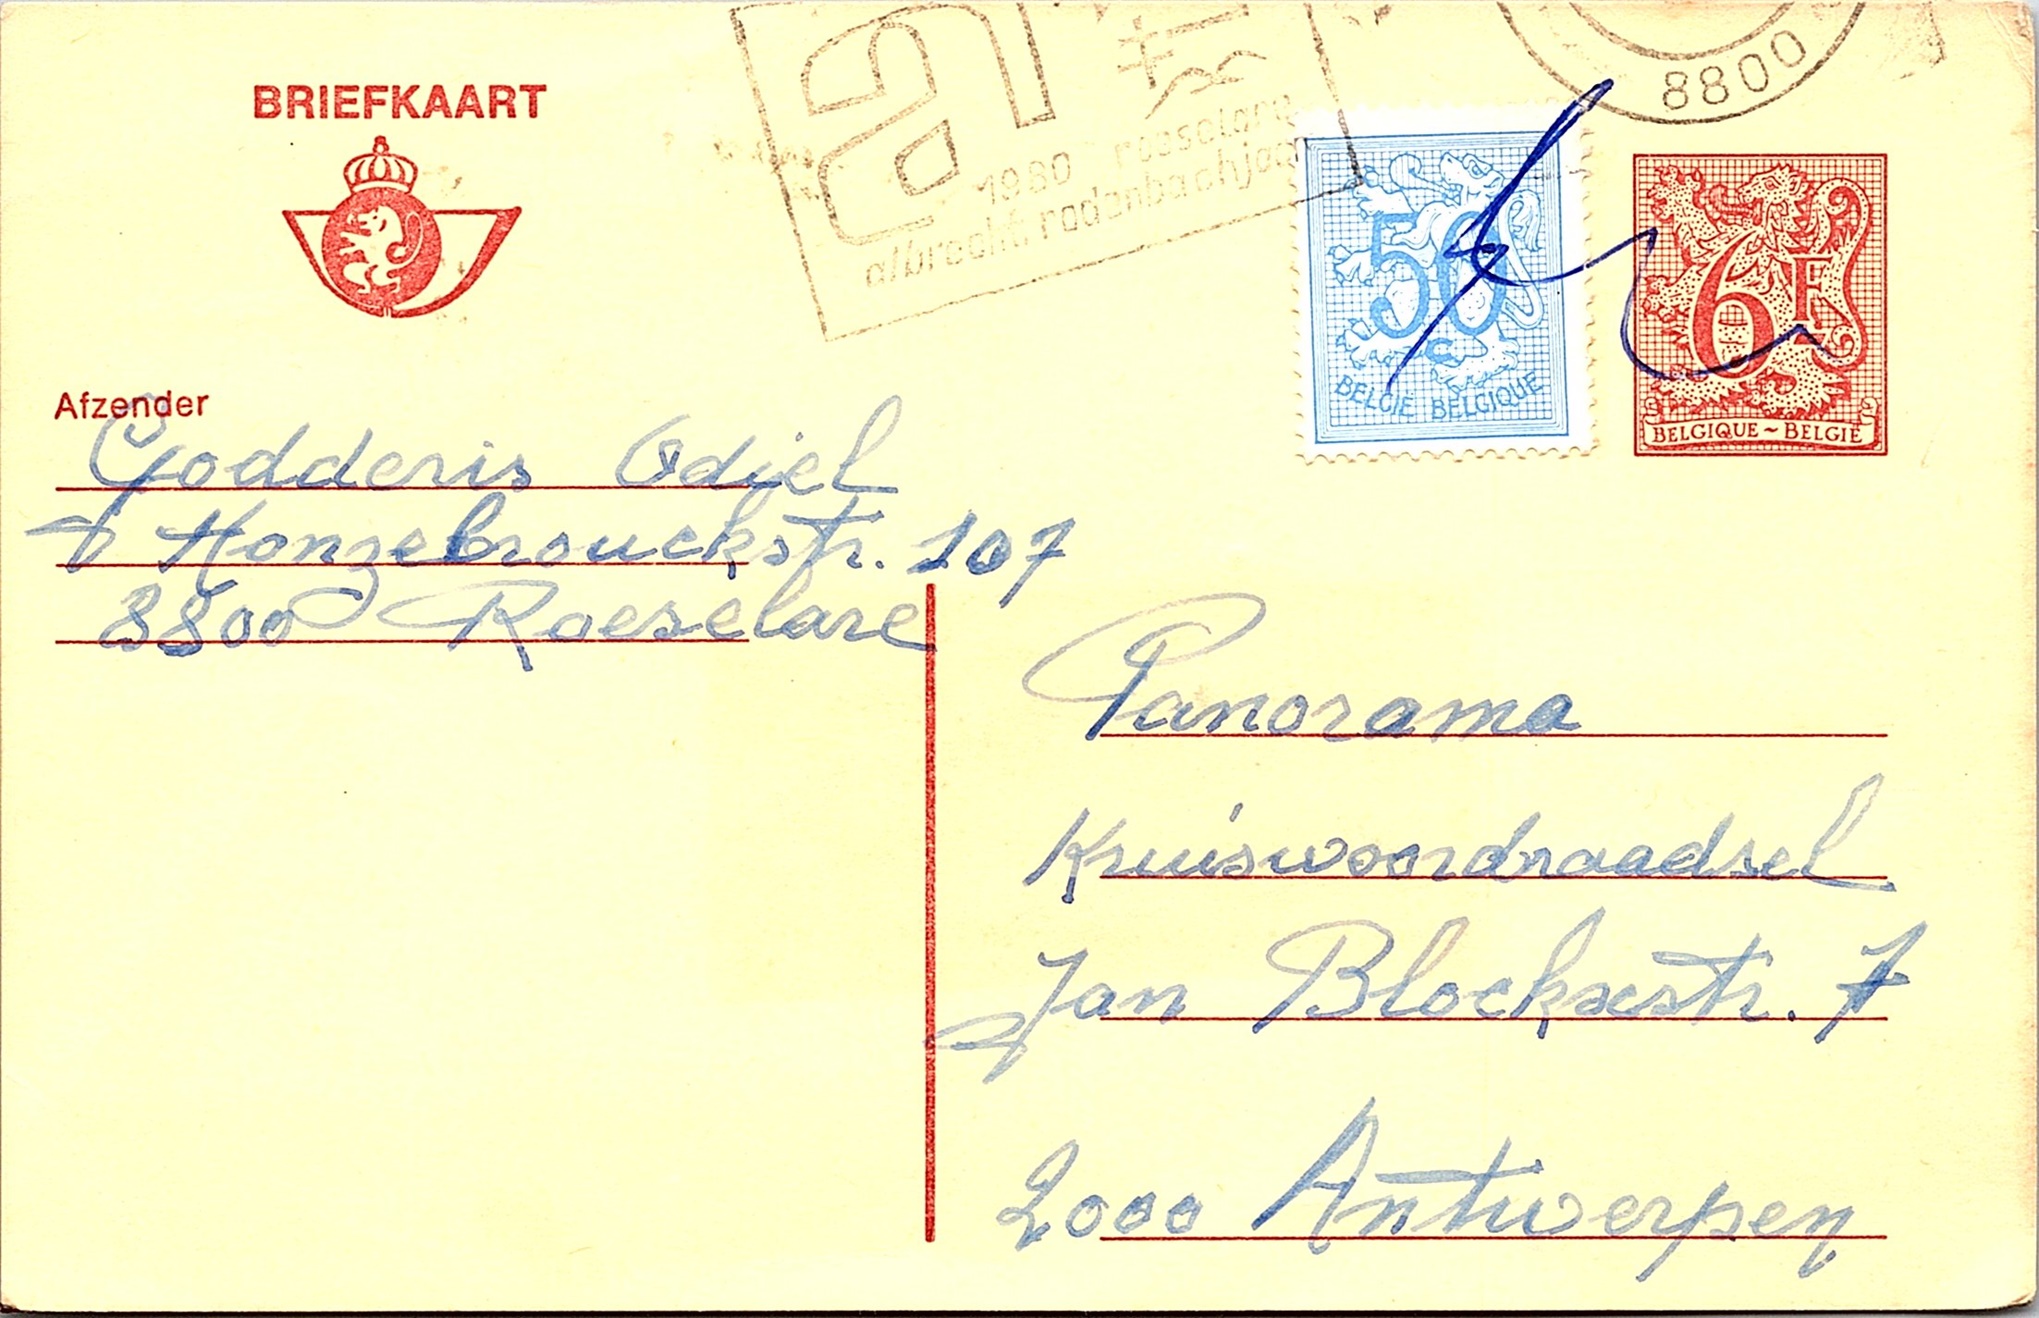 BRIEFKAART
1980 roeselare
albrecht rodenbachjaar
8800
50
C
BELGIE BELGIQUE
6F
BELGIQUE ~ BELGIË
Afzender
Godderis Odiel
Honzebrouckstr. 107
8800 Roeselare
Panorama
Kruiswoordraadsel
Jan Blockxstr. 7
2000 Antwerpen